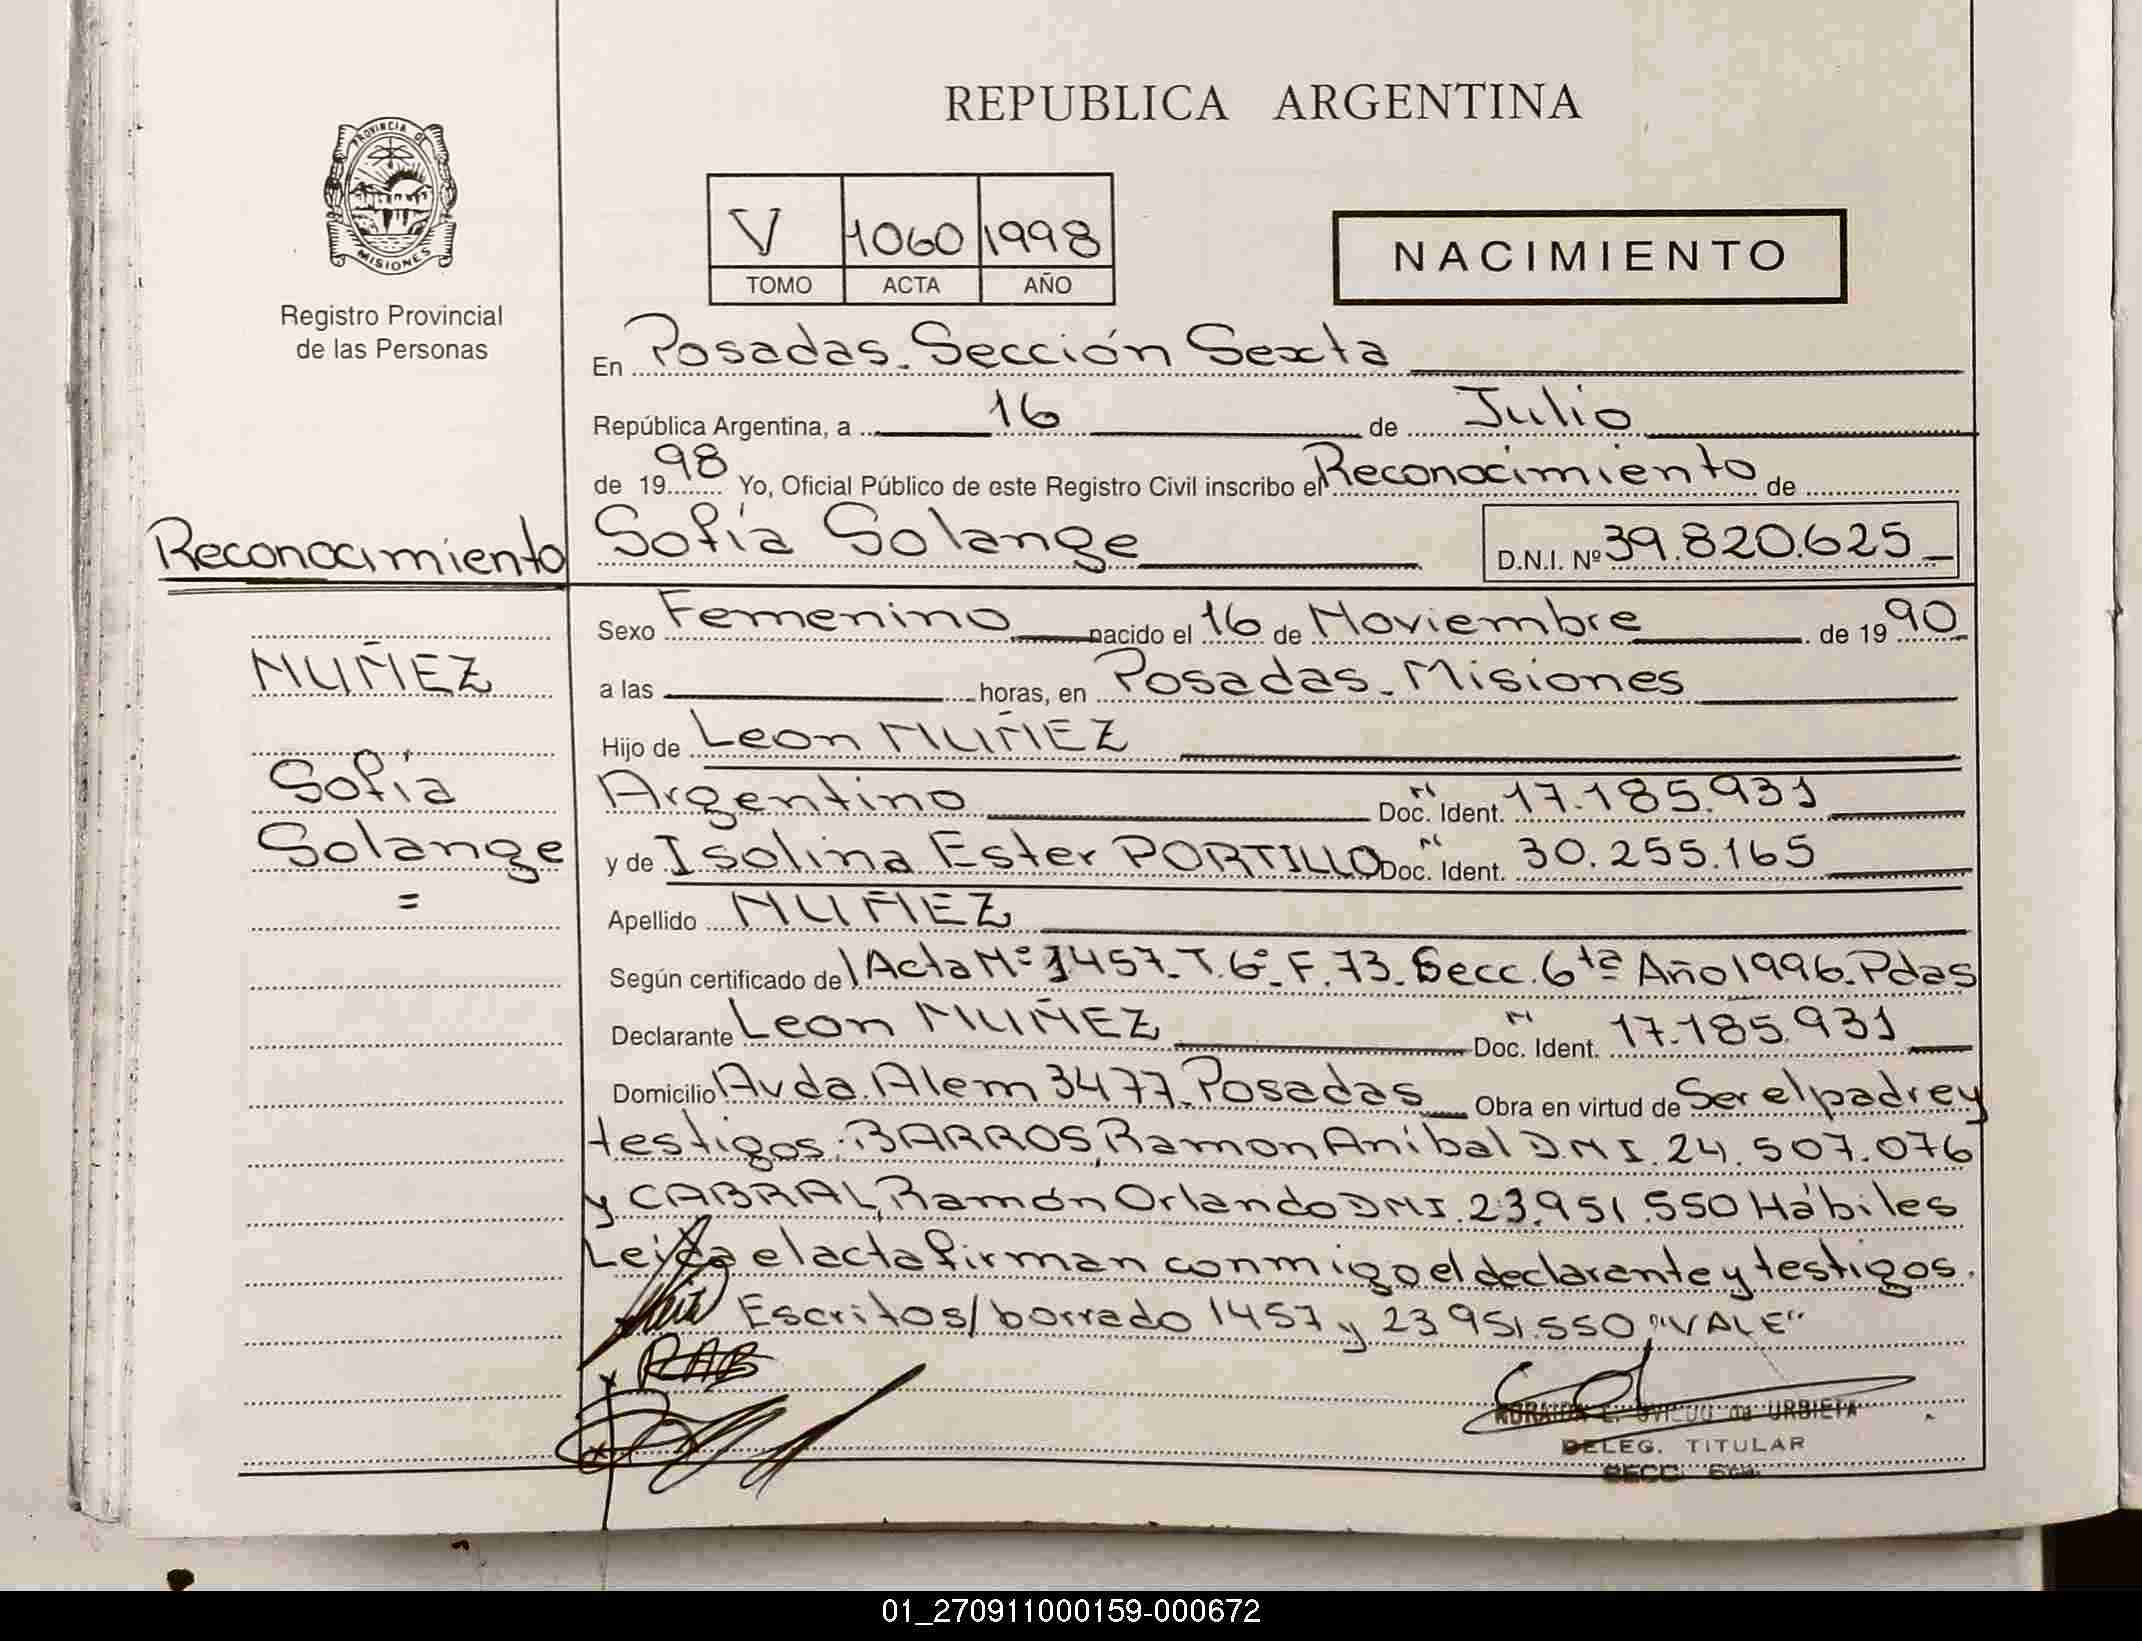 REPUBLICA ARGENTINA
PROVINCIA DE
MISIONES
Registro Provincial
de las Personas
V 1060 1998
TOMO ACTA AÑO
NACIMIENTO
En Posadas. Sección Sexta
República Argentina, a 16 de Julio
de 1998 Yo, Oficial Público de este Registro Civil inscribo el Reconocimiento de
Reconocimiento
Sofía Solange D.N.I. Nº 39.820.625
Sexo Femenino nacido el 16 de Noviembre de 1990
NUÑEZ
a las horas, en Posadas. Misiones
Hijo de Leon NUÑEZ
Sofía
Argentino Doc. N Ident. 17.185.931
Solange
=
y de Isolina Ester PORTILLO Doc. N Ident. 30.255.165
Apellido NUÑEZ
Según certificado de Acta Nº 1457. T. 6º. F. 73. Secc. 6ta Año 1996. Pdas
Declarante Leon NUÑEZ Doc. N Ident. 17.185.931
Domicilio Avda. Alem 3477. Posadas Obra en virtud de Ser el padre y
testigos: BARROS, Ramon Aníbal DNI. 24.507.076
y CABRAL, Ramón Orlando DNI. 23.951.550 Hábiles
Leída el acta firman conmigo el declarante y testigos.
Escritos/borrado 1457 y 23951.550 "VALE"
RAB
OVIEDO de URBIETA
DELEG. TITULAR
SECC. 6ta.
01_270911000159-000672